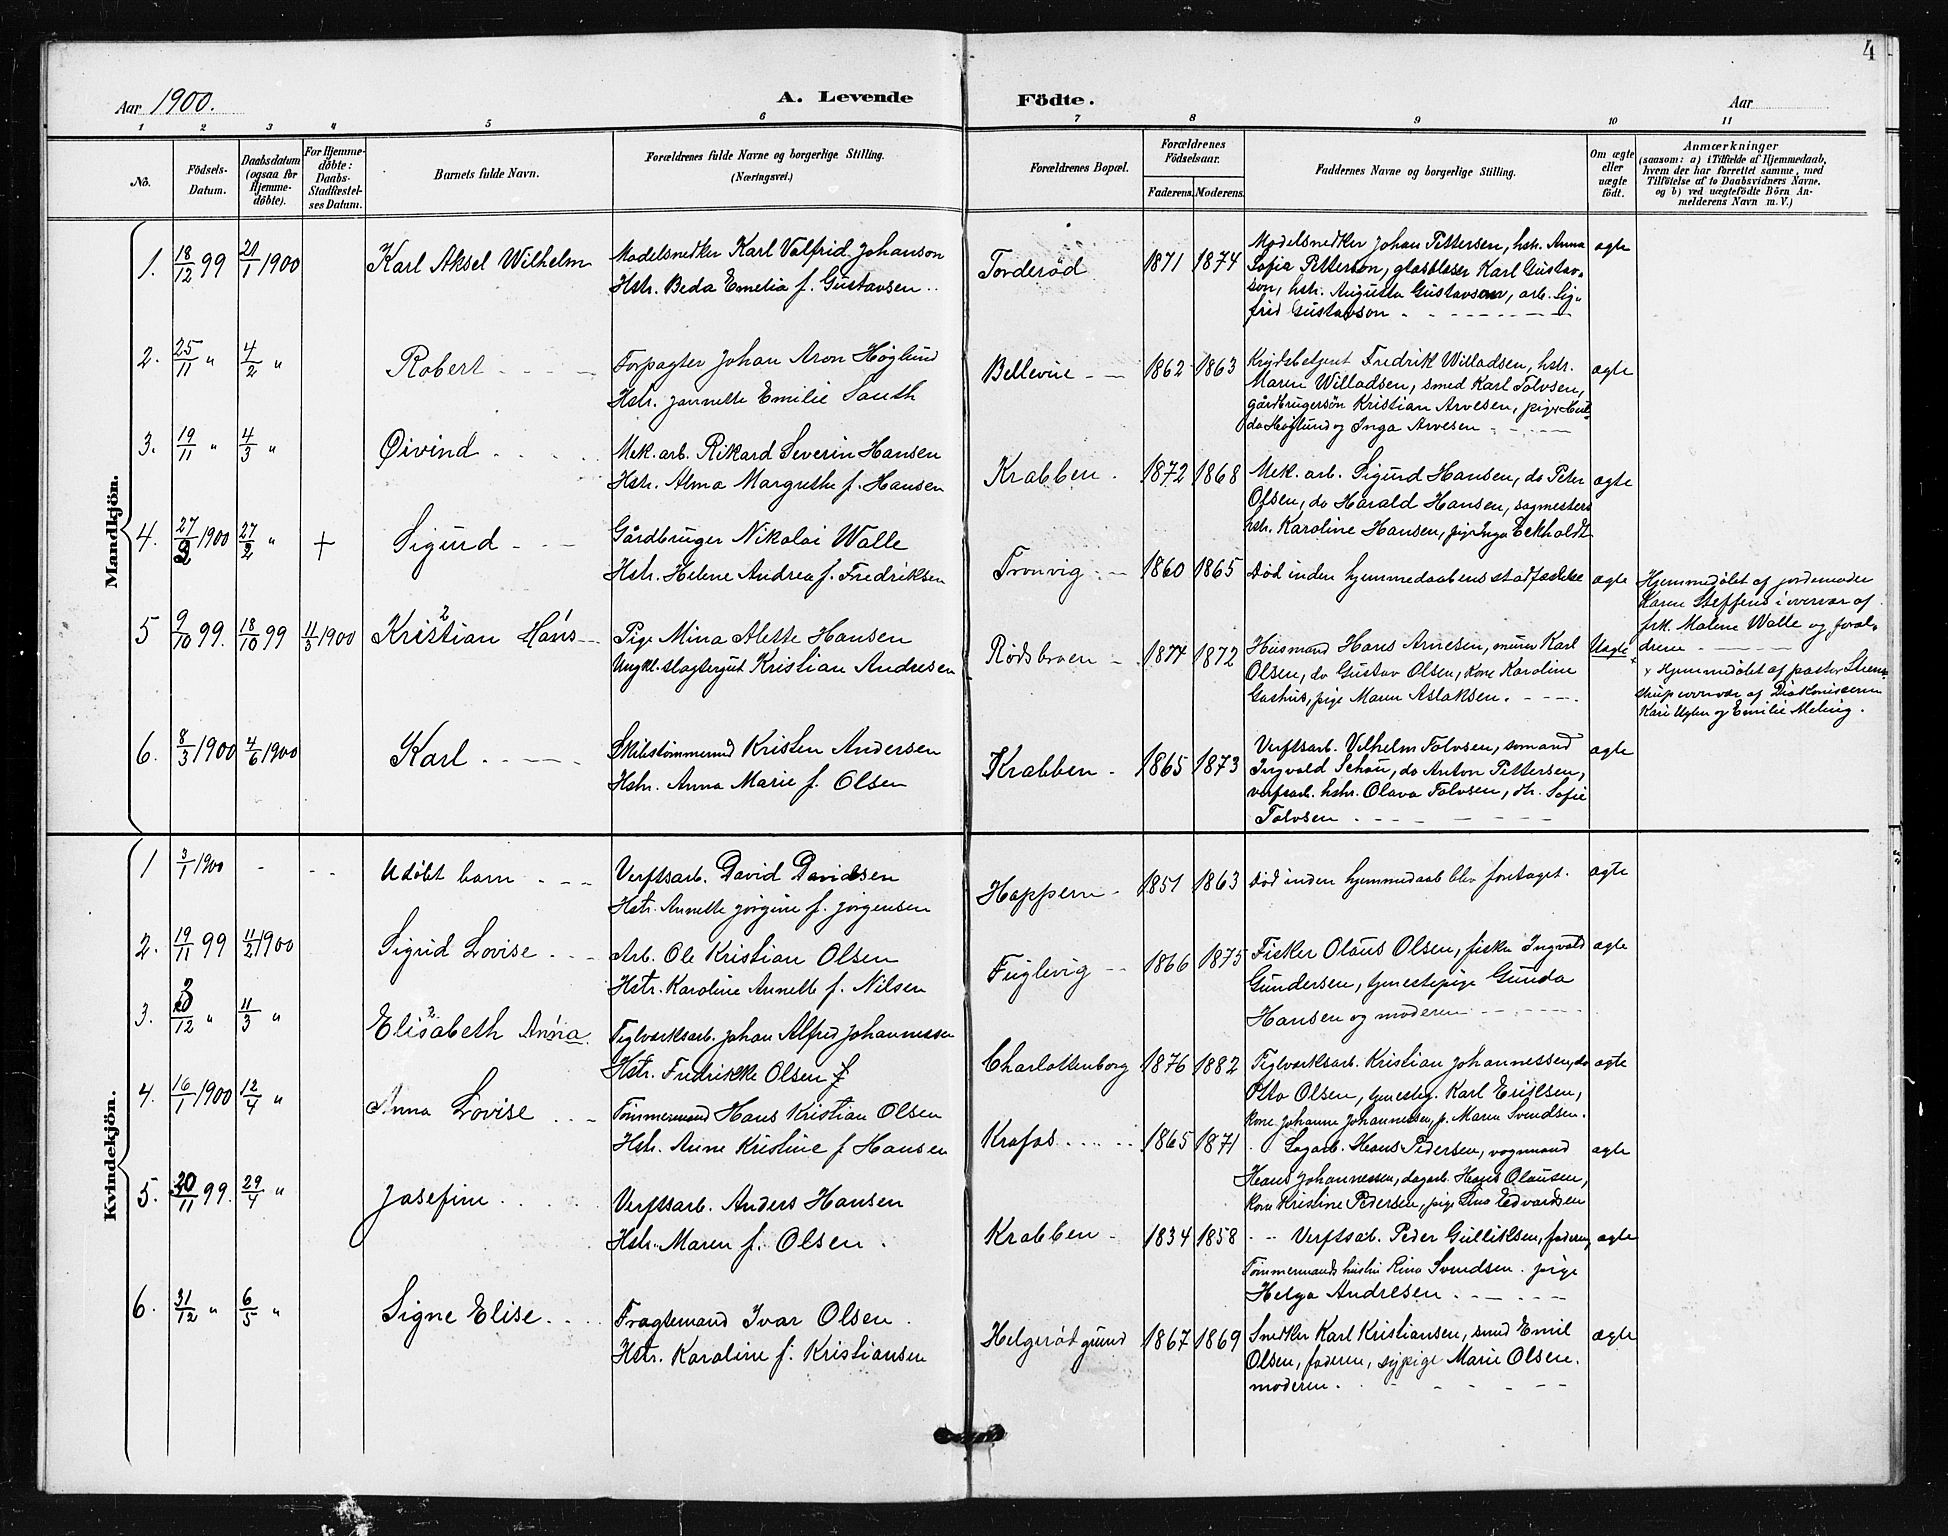 4
Aar 1900. A. Levende Födte. Aar
1 2 3 4 5 6 7 8 9 10 11
No.
Födsels-
Datum.
Daabsdatum
(ogsaa for
Hjemme-
döbte).
For Hjemme-
döbte:
Daabs-
Stadfestel-
ses Datum.
Barnets fulde Navn.
Forældrenes fulde Navne og borgerlige Stilling.
(Næringsvei.)
Forældrenes Bopæl.
Forældrenes
Fødselsaar.
Faderens. Moderens.
Faddernes Navne og borgerlige Stilling.
Om ægte
eller
uægte
født.
Anmærkninger
(saasom: a) i Tilfælde af Hjemmedaab,
hvem der har forrettet samme, med
Tilföielse af to Daabsvidners Navne.
og b) ved uægtefödte Börn An-
melderens Navn m. V.)
Mandkjön.
1. 18/12 99 21/1 1900 Karl Aksel Wilhelm
Modelsnedker Karl Valfrid Johanson
Hstr. Beda Emelia f. Gustavsen
Torderød 1871 1874
Modelsnedker Johan Pettersen, hstr. Anna
Sofia Petterson, glasblaser Karl Gustav-
son, hstr. Augusta Gustavson, arb. Sig-
frid Gustavson
ægte
2. 25/11 " 4/2 " Robert
Forpagter Johan Aron Høglund
Hstr. Jannette Emilie South
Bellevue 1862 1863
Krydsbetjent Fredrik Willadsen, hstr.
Maren Willadsen, smed Karl Tolvsen,
gårdbrugersøn Kristian Arvesen, pige Hul-
da Høglund og Inga Arvesen
ægte
3. 19/11 " 4/3 " Øivind
Mek. arb. Rikard Severin Hansen
Hstr. Alma Margrethe f. Hansen
Krabben 1872 1868
Mek. arb. Sigurd Hansen, do Peter
Olsen, do Harald Hansen, sagmesters
hstr. Karoline Hansen, pige Inga Eekholdt
ægte
4. 27/2 1900 27/2 " + Sigurd
Gårdbruger Nikolai Walle
Hstr. Helene Andrea f. Fredriksen
Tronvig 1860 1865
Død inden hjemmedaabens stadfæstelse
ægte
Hjemmedøbt af jordemoder
Karen Steffens i overvær af
frk. Malene Walle og foræl-
drene
5 9/10 99. 18/10 99 11/3 1900 Kristian Hans
Pige Mina Alette Hansen
Ungkl. slagtergut Kristian Andresen
Rødsbroen 1877 1872
Husmand Hans Arnesen, murer Karl
Olsen, do Gustav Olsen, kone Karoline
Gashus, pige Maren Aslaksen.
Uægte
+ Hjemmedøbt af pastor
overvær af Diakonisserne
Kari Uglen og Emilie Meling.
6. 8/3 1900 4/6 1900 Karl
Skibstømmermd Kristen Andersen
Hstr. Anna Marie f. Olsen
Krabben 1865 1873
Verftsarb. Vilhelm Tolvsen, sømand
Ingvald Schou, do Anton Pettersen,
verftsarb. hstr. Olava Tolvsen, Sofie
Tolvsen
ægte
Kvindekjön.
1 3/1 1900 Udøbt barn
Verftsarb. David Davidsen
Hstr. Annette Jørgine f. Jørgensen
Hoppern 1851 1863
Død inden hjemmedaab blev foretaget.
ægte
2. 19/11 99 11/2 1900 Sigrid Lovise
Arb. Ole Kristian Olsen
Hstr. Karoline Annette f. Nilsen
Fuglevig 1866 1875
Fisker Olaus Olsen, fisker Ingvald
Gundersen, tjenestepige Gunda
Hansen og moderen
ægte
3. 12 " 11/3 " Elisabeth Anna
Teglværksarb. Johan Alfred Johannessen
Hstr. Fredrikke Olsen f
Charlottenborg 1876 1882
Teglværksarb. Kristian Johannessen, do
Otto Olsen, tjenestg. Karl Eriksen,
kone Johanne Johannessen, p. Maren Svendsen.
ægte
4. 16/1 1900 12/4 " Anna Lovise
Tømmermand Hans Kristian Olsen
Hstr. Anne Kristine f. Hansen
Krafos 1865 1871
Sagarb. Hans Pedersen, vognmand
Hans Johannessen, dagarb. Hans Olausen,
kone Kristine Pedersen, pige Lina Edvardsen
ægte
5. 20/11 99. 29/4 " Josefine
Verftsarb. Anders Hansen
Hstr. Maren f. Olsen
Krabben 1834 1858
Verftsarb. Peder Gulliksen, faderen,
Tømmermands hustru Rina Svendsen. pige
Helga Andresen
ægte
6. 31/12 " 6/5 " Signe Elise
Fragtemand Ivar Olsen
Hstr. Karoline f. Kristiansen
Helgerød grund 1867 1869
Snedker Karl Kristiansen, smed Emil
Olsen, faderen, sypige Marie Olsen.
moderen.
ægte